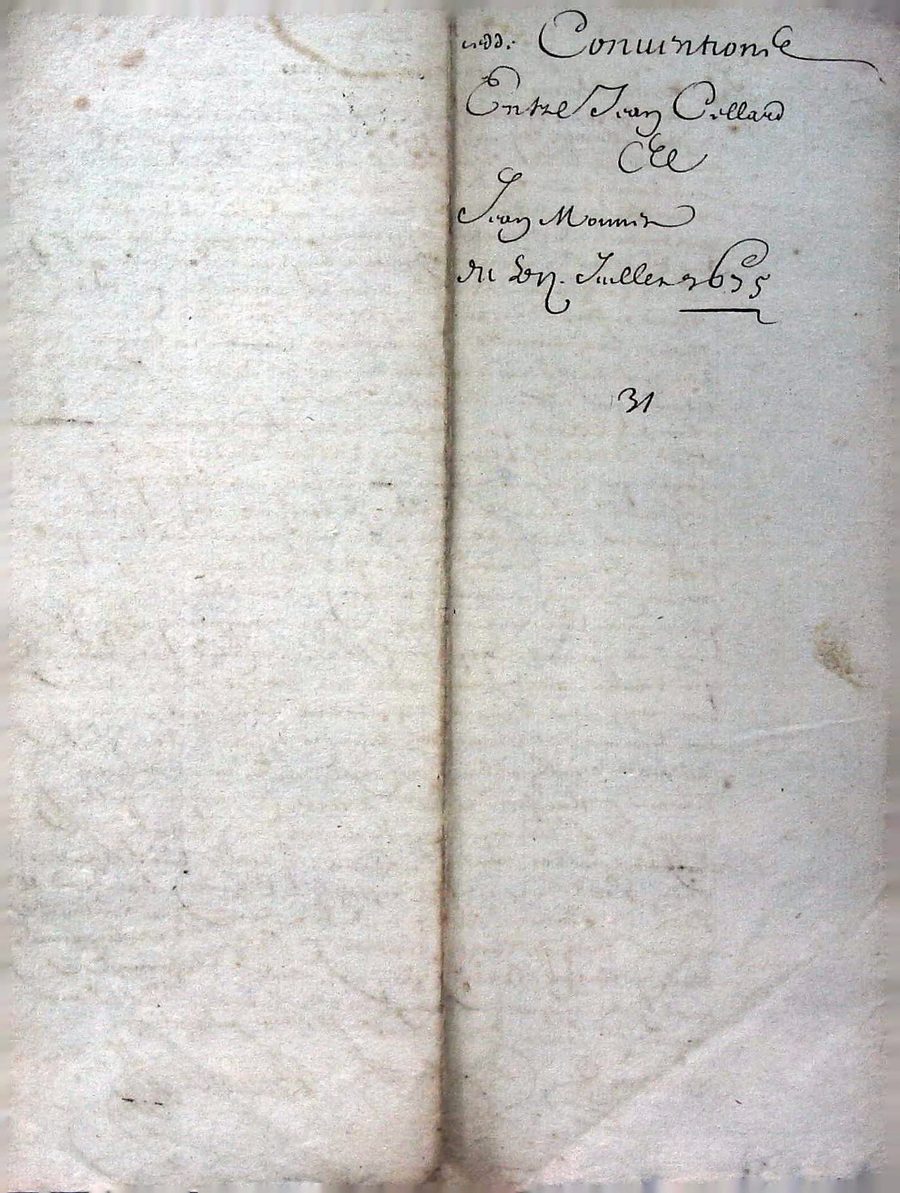 Conuentions
Entre Jean Cellard
Et
Jean Mounier
du Juillet 1675
31